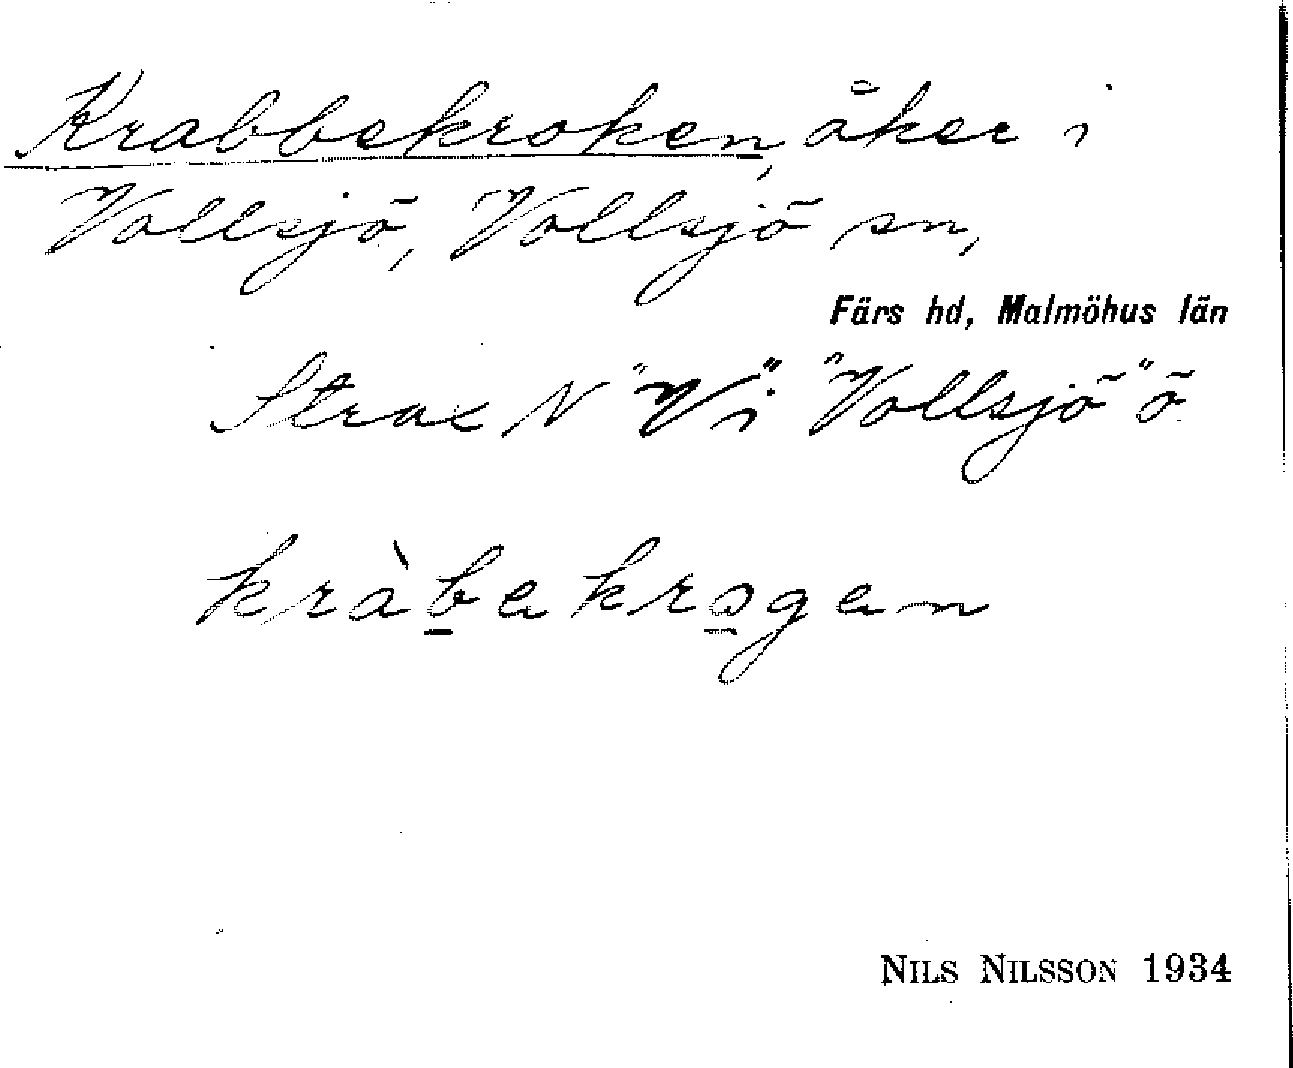 Krabbekroken, åker i
Vollsjö, Vollsjö sn,
Färs hd, Malmöhus län
Strax N "V i" "Vollsjö" ö
kràbekrogen
NILS NILSSON 1934